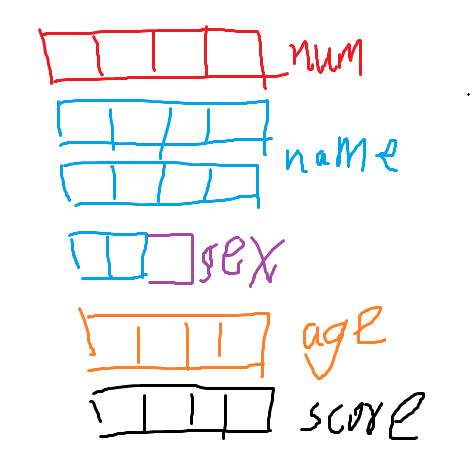 num
name
sex
age
score